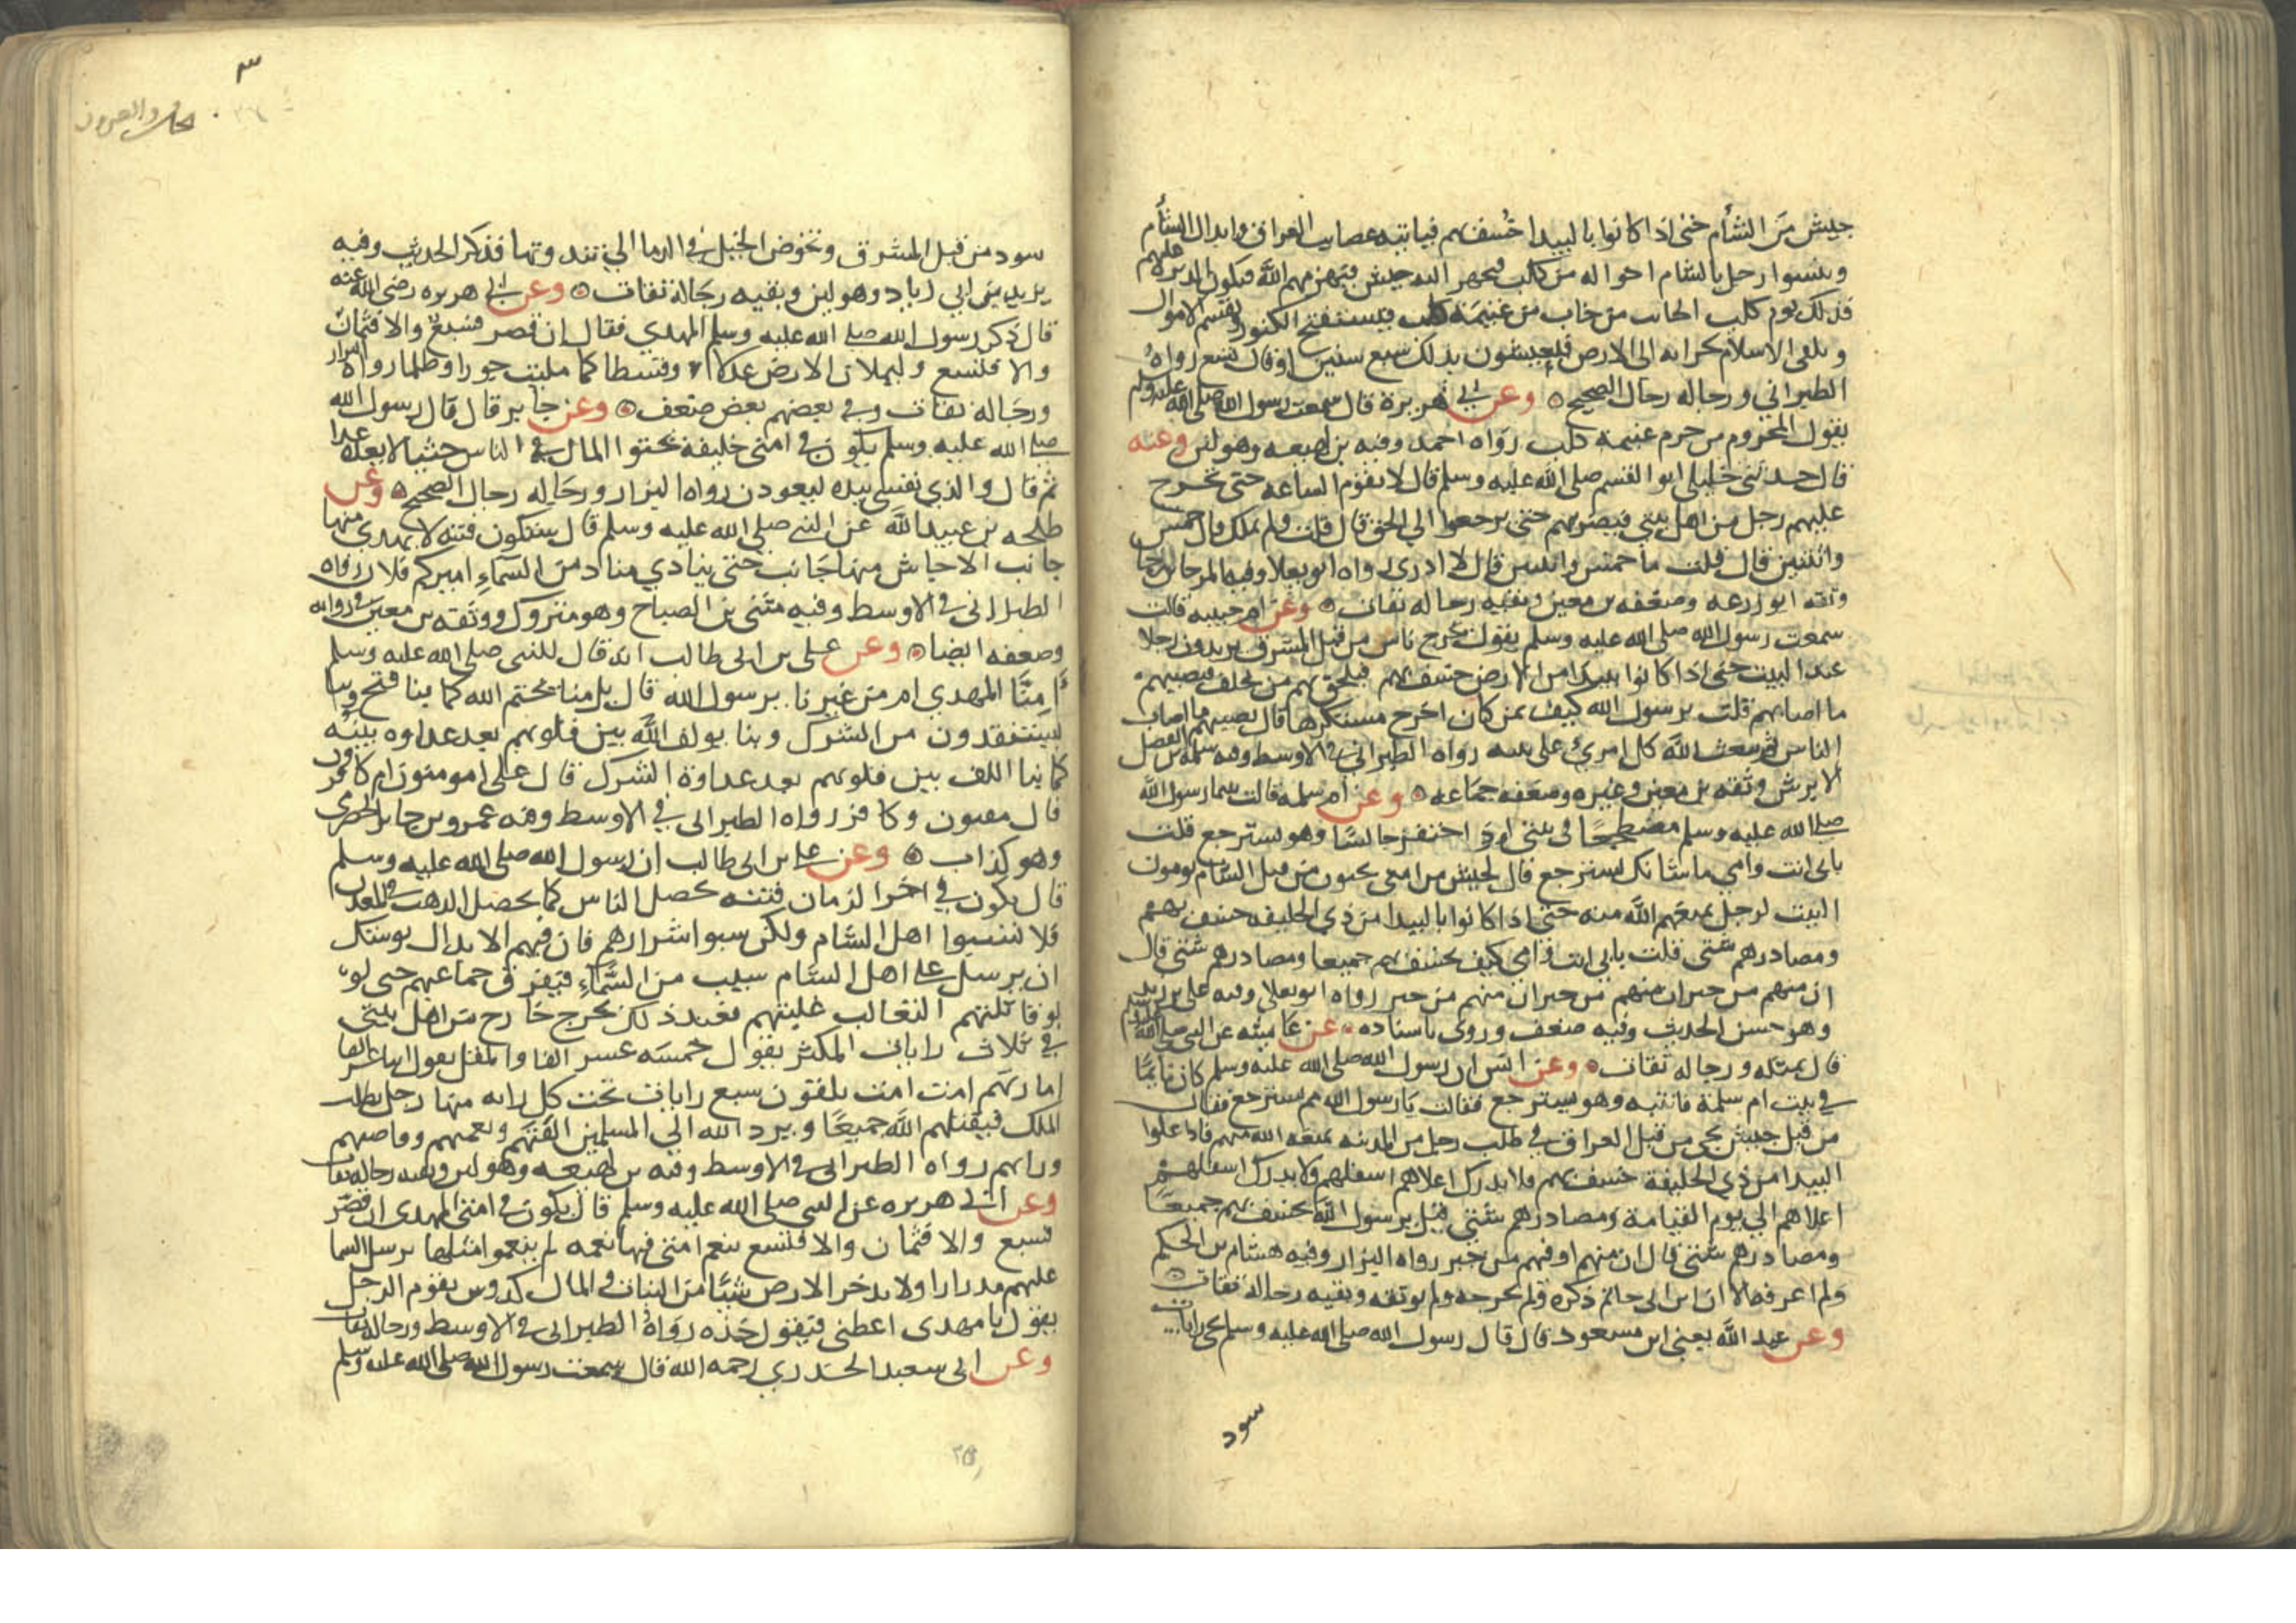 جيش من الشأم حتى اذا كانوا بالبيدا خُسف بهم فياتيه عصايب العراق وابدال الشأم
وينشوا رجل بالشام اخواله من كلب فيجهز اليه جيش فيهزمهم الله فيكون الدبرة عليهم
فذلك يوم كلب الخائب من خاب من غنيمة كلب فيستفتح الكنوز ويقسم الاموال
ويلقى الاسلام بجرانه الى الارض فيعيشون بذلك سبع سنين او قال تسع رواهُ
الطبراني ورجاله رجال الصحيح ۞ وعن ابي هريرة قال سمعت رسول الله صلى الله عليه وسلم
يقول المحروم من حرم غنيمة كلب رواه احمد وفيه بن لهيعه وهو لين وعنه
قال حدثني خليلي ابو القسم صلى الله عليه وسلم قال لا يقوم الساعه حتى تخرج
عليهم رجل من اهل بيتي فيضربهم حتى يرجعوا الي الحق قال قلت ولم يملك قال خمس
واثنين قال قلت ما خمس واثنين قال لا ادري رواه ابو يعلا وفيه المرجا بن رجا
وثقه ابو زرعه وضعفه بن معين وبقيه رجاله ثقات ۞ وعن ام حبيبه قالت
سمعت رسول الله صلى الله عليه وسلم يقول يخرج ناس من قبل المشرق يريدون رجلا
عند البيت حتى اذا كانوا ببيدا من الارض خسف بهم فيلحق بهم من تخلف فيصيبهم
ما اصابهم قلت يرسول الله كيف بمن كان اخرج مستكرها قال يصيبهم ما اصاب
الناس ثم يبعث الله كل امرئ على نيته رواه الطبراني في الاوسط وفيه سلمه بن الفضل
الابرش وثقه بن معين وغيره وضعفه جماعه ۞ وعن ام سلمه قالت بينما رسول الله
صلى الله عليه وسلم مضطجعًا في بيتي اذ احتفز جالسًا وهو يسترجع قلت
بابى انت وامي ما شانك تسترجع قال لجيش من امتى يجيون من قبل الشام يومون
البيت لرجل يمنعهم الله منه حتى اذا كانوا بالبيدا من ذي الحليفه خسف بهم
ومصادرهم شتى قلت بابي انت وامي كيف يخسف بهم جميعا ومصادرهم شتى قال
ان منهم من جبر ان منهم من جبر ان منهم من جبر رواه ابو يعلى وفيه على بن زيد
وهو حسن الحديث وفيه ضعف وروى باسناده ۞ عن عايشه عن النبي صلى الله عليه وسلم
قال بمثله ورجاله ثقات ۞ وعن انس ان رسول الله صلى الله عليه وسلم كان نايمًا
في بيت ام سلمة فانتبه وهو يسترجع فقالت يَا رسول الله مم تسترجع فقال
من قبل جيش يجي من قبل العراق في طلب رجل من المدينه يمنعه الله منهم فاذا علوا
البيدا من ذي الحليفة خسف بهم فلا يدرك اعلاهم اسفلهم ولا يدرك اسفلهم
اعلاهم الي يوم القيامة ومصادرهم شتى قيل يرسول الله يخسف بهم جميعًا
ومصادرهم شتى قال ان منهم او فيهم من جبر رواه البزار وفيه هشام بن الحكم
ولم اعرفه الا ان ابن ابى حاتم ذكره ولم يجرحه ولم يوثقه وبقيه رجاله ثقات ۞
وعن عبد الله يعنى ابن مسعود قال قال رسول الله صلى الله عليه وسلم تجي رايات
سود
٣
سود من قبل المشرق وتخوض الخيل في الدما الي ثندوتها فذكر الحديث وفيه
يزيد بن ابي زياد وهو لين وبقيه رجاله ثقات ۞ وعن ابي هريره رضى الله عنه
قال ذكر رسول الله صلى الله عليه وسلم المهدي فقال ان قصر فسبع والا فثمان
والا فتسع وليملان الارض عدلا وقسطا كما مليت جورا وظلما رواه البزار
ورجاله ثقات وفي بعضهم بعض ضعف ۞ وعن جابر قال قال رسول الله
صلى الله عليه وسلم يكون في امتى خليفة يحثوا المال في الناس حثيا لا يعده عدا
ثم قال والذي نفسى بيده ليعودن رواه البزار ورجاله رجال الصحيح ۞ وعن
طلحه بن عبيد الله عن النبي صلى الله عليه وسلم قال ستكون فتنه لا يهدى منها
جانب الا جاش منها جَانب حتى ينادي مناد من السمآءِ اميركم فلان رواه
الطبراني في الاوسط وفيه مثنى بن الصباح وهو متروك ووثقه بن معين في روايه
وضعفه ايضا ۞ وعن على بن ابى طالب انه قال للنبى صلى الله عليه وسلم
أَمِنَّا المهدي ام من غيرنا يرسول الله قال بل منا يختم الله كما بنا فتح وبنا
يستنقذون من الشرك وبنا يولف الله بين قلوبهم بعد عداوه بينه
كما بنا الف بين قلوبهم بعد عداوة الشرك قال على امومنون ام كافرون
قال مفتون وكافر رواه الطبرانى في الاوسط وفيه عمرو بن جابر الحضرمى
وهو كذاب ۞ وعن على بن ابى طالب ان رسول الله صلى الله عليه وسلم
قال يكون في اخر الزمان فتنه تحصل الناس كما يحصل الذهب في المعدن
فلا تسبوا اهل الشام ولكن سبوا اشرارهم فان فيهم الابدال يوشك
ان يرسل على اهل الشام سيب من السَّمآءِ فيفرق جماعتهم حتى لو
لو قاتلتهم الثعالب غلبتهم فعند ذلك يخرج خارج من اهل بيتى
في ثلاث رايات المكثر يقول خمسه عشر الفا والمقل يقول اثنا عشر الفا
امارتهم امت امت يلقون سبع رايات تحت كل رايه منها رجل يطلب
الملك فيقتلهم الله جميعًا ويرد الله الي المسلمين الفتهم ونعمتهم وقاصيهم
ورايهم رواه الطبرانى في الاوسط وفيه بن لهيعه وهو لين وبقيه رجاله ثقات
وعن ابي هريره عن النبى صلى الله عليه وسلم قال يكون في امتى المهدى ان قصر
فسبع والا فثمان والا فتسع تنعم امتى فيها نعمه لم ينعموا مثلها يرسل السما
عليهم مدرارا ولا يدخر الارض شيًا من النبات والمال كدوس يقوم الرجل
يقول يا مهدى اعطنى فيقول خذه رواه الطبرانى في الاوسط ورجاله ثقات
وعن ابى سعيد الخدري رحمه الله قال سمعت رسول الله صلى الله عليه وسلم